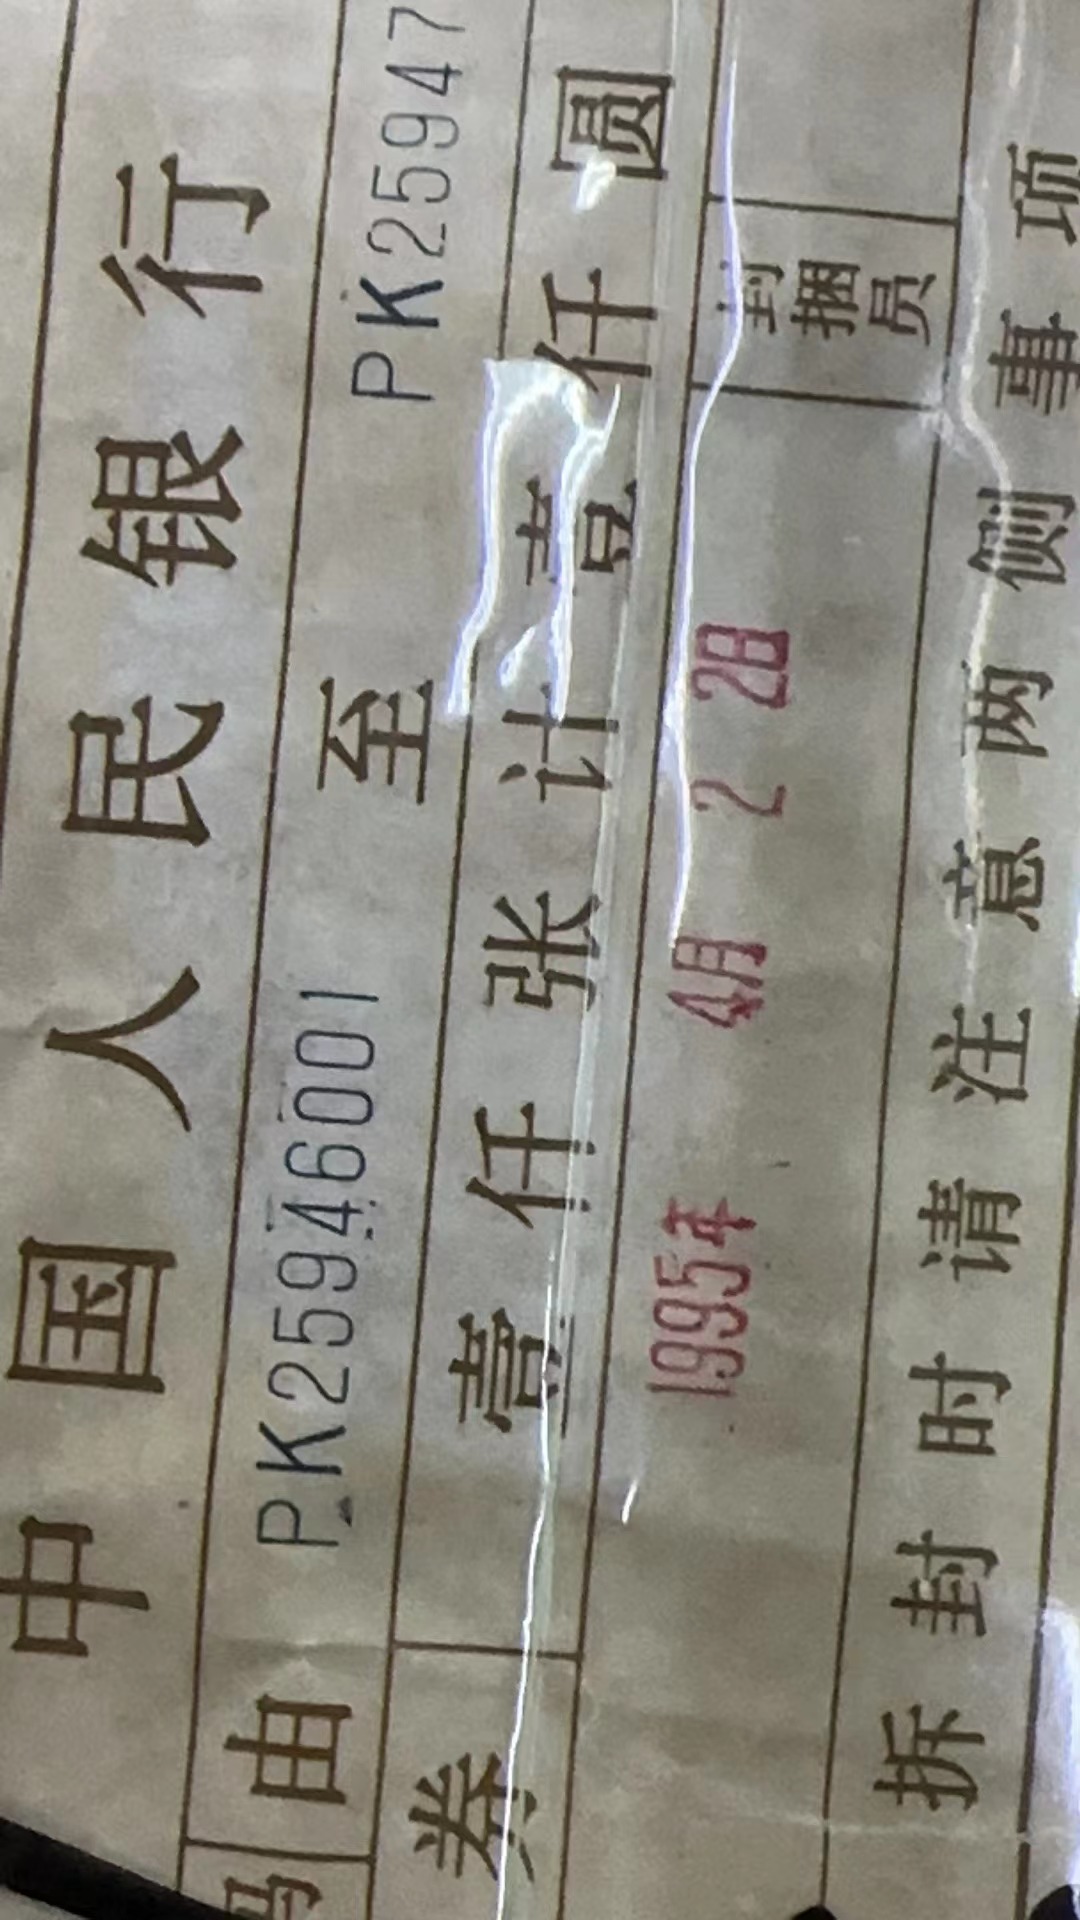 中国人民银行
号 由 PK25946001 至 PK25947
券 壹仟张计壹仟圆
1995年 4月 2 2日 封捆员
拆封时请注意两侧事项